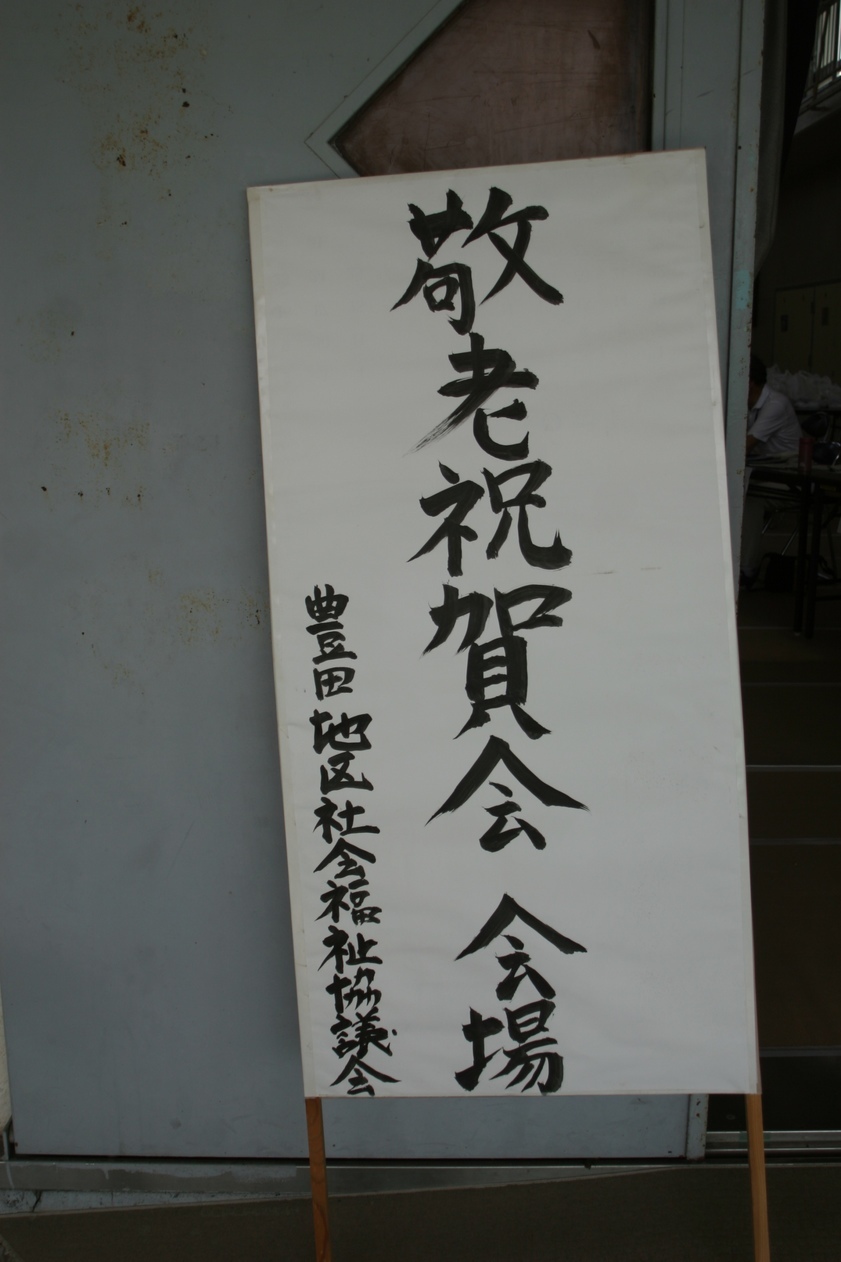 敬老祝賀会 会場
豊田地区社会福祉協議会